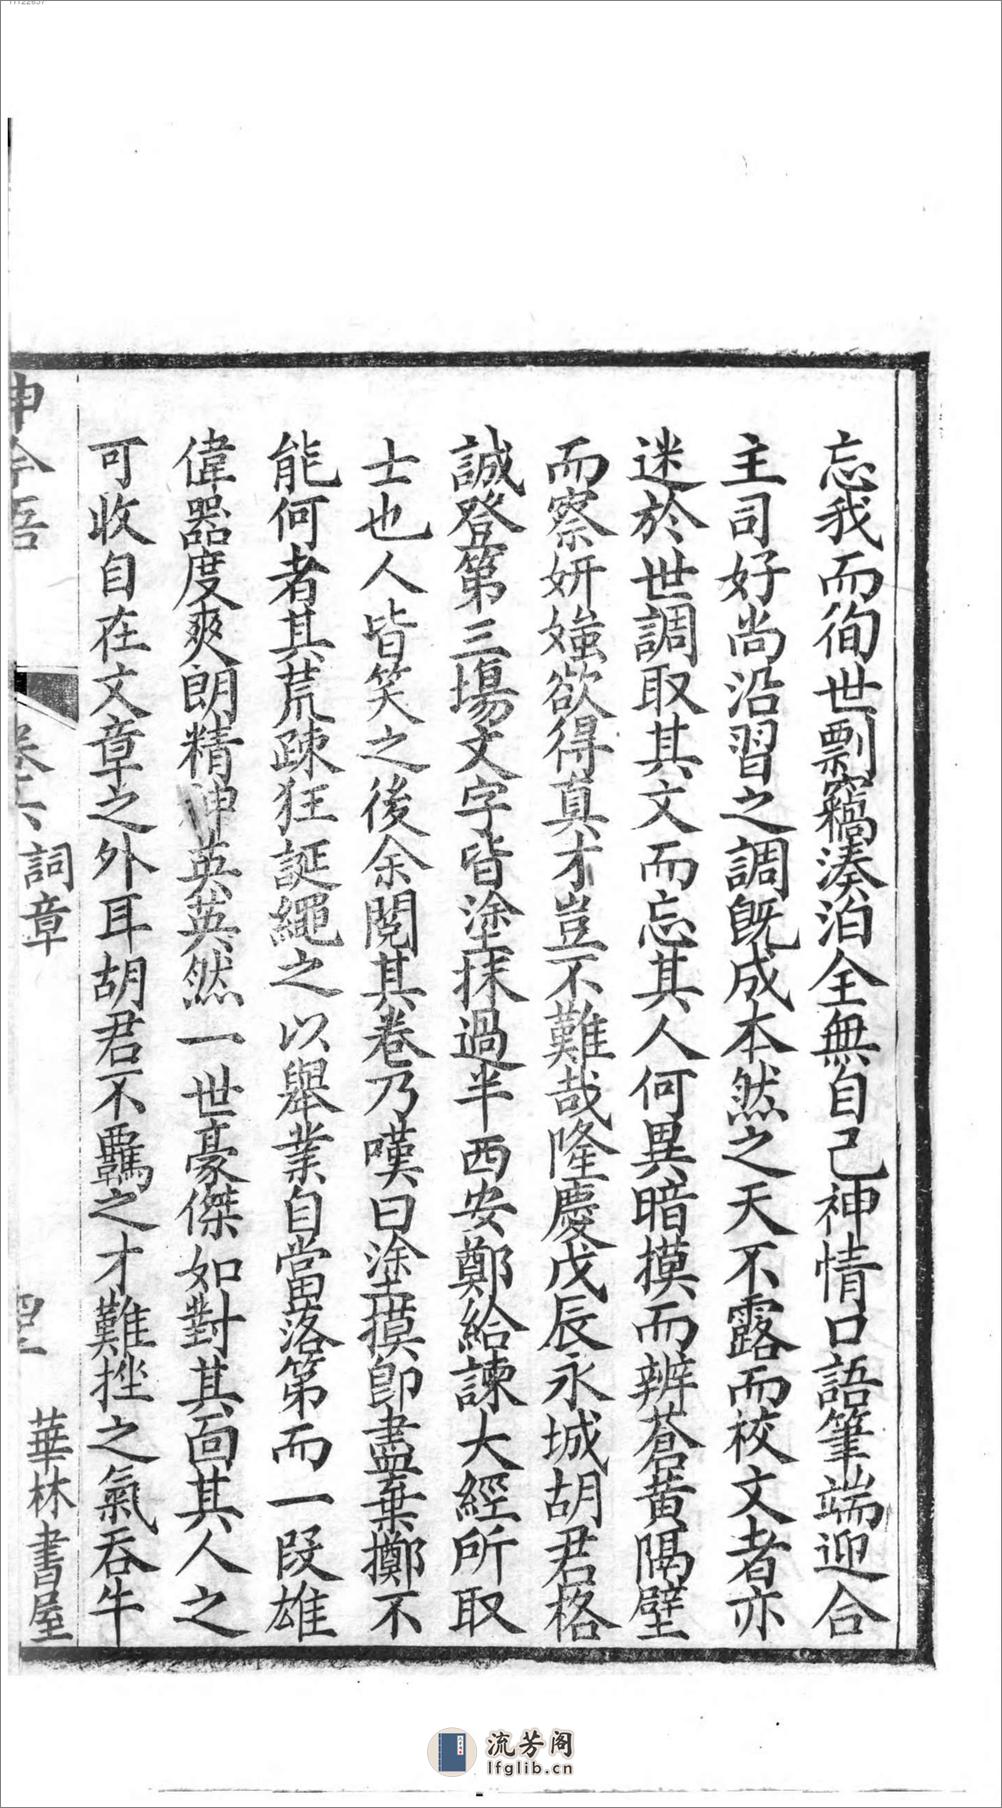 忘我而徇世剽竊湊泊全無自己神情口語筆端迎合
主司好尚沿習之調旣成本然之天不露而校文者亦
迷於世調取其文而忘其人何異暗摸而辨蒼黃隔壁
而察妍媸欲得真才豈不難哉隆慶戊辰永城胡君格
誠登第三塲文字皆塗抹過半西安鄭給諫大經所取
士也人皆笑之後余閱其卷乃嘆曰塗摸卽盡棄擲不
能何者其荒疎狂誕繩之以舉業自當落第而一段雄
偉器度爽朗精神英英然一世豪傑如對其面其人之
可收自在文章之外耳胡君不羈之才難挫之氣吞牛
呻吟語
卷六
詞章
華林書屋
流芳阁
lfglib.cn